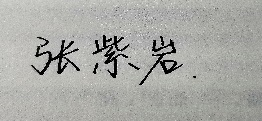 张紫岩.